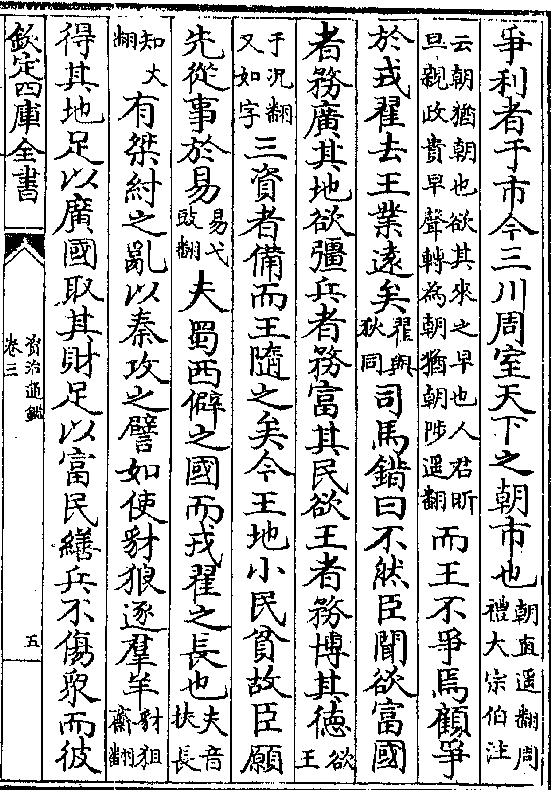 爭利者于市今三川周室天下之朝市也朝直遥翻周禮大宗伯注
云朝猶朝也欲其來之早也人君昕旦親政貴早聲轉為朝猶朝陟遥翻而王不爭焉顧爭
於戎翟去王業遠矣翟與狄同司馬錯曰不然臣聞欲富國
者務廣其地欲彊兵者務富其民欲王者務博其德欲王
于况翻又如字三資者備而王隨之矣今王地小民貧故臣願
先從事於易易弋豉翻夫蜀西僻之國而戎翟之長也夫音扶長
知丈翻有桀紂之亂以秦攻之譬如使豺狼逐羣羊豺狙齋翻
得其地足以廣國取其財足以富民繕兵不傷衆而彼
欽定四庫全書
資治通鑑
卷三
五